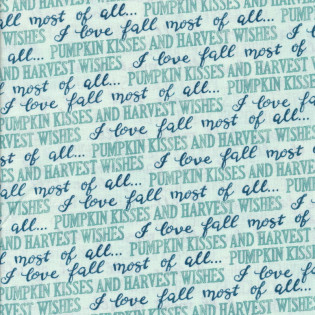 most of all... PUMPKIN
KISSES AND HARVEST WISHES I love fall most
all... PUMPKIN KISSES AND HARVEST WISHES
most of all... PUMPKIN KISSES AND HARVEST
I love fall most of all...
PUMPKIN KISSES AND HARVEST WISHES I love fall
HARVEST WISHES I love fall most of all...
all... PUMPKIN KISSES AND HARVEST WISHES
fall most of all... PUMPKIN KISSES AND HARVEST
I love fall most of all...
KISSES AND HARVEST WISHES I love fall most
all... PUMPKIN KISSES AND HARVEST WISHES
most of all... PUMPKIN KISSES AND HARVEST
I love fall most of all...
PUMPKIN KISSES AND HARVEST WISHES I love fall
HARVEST WISHES I love fall most of all...